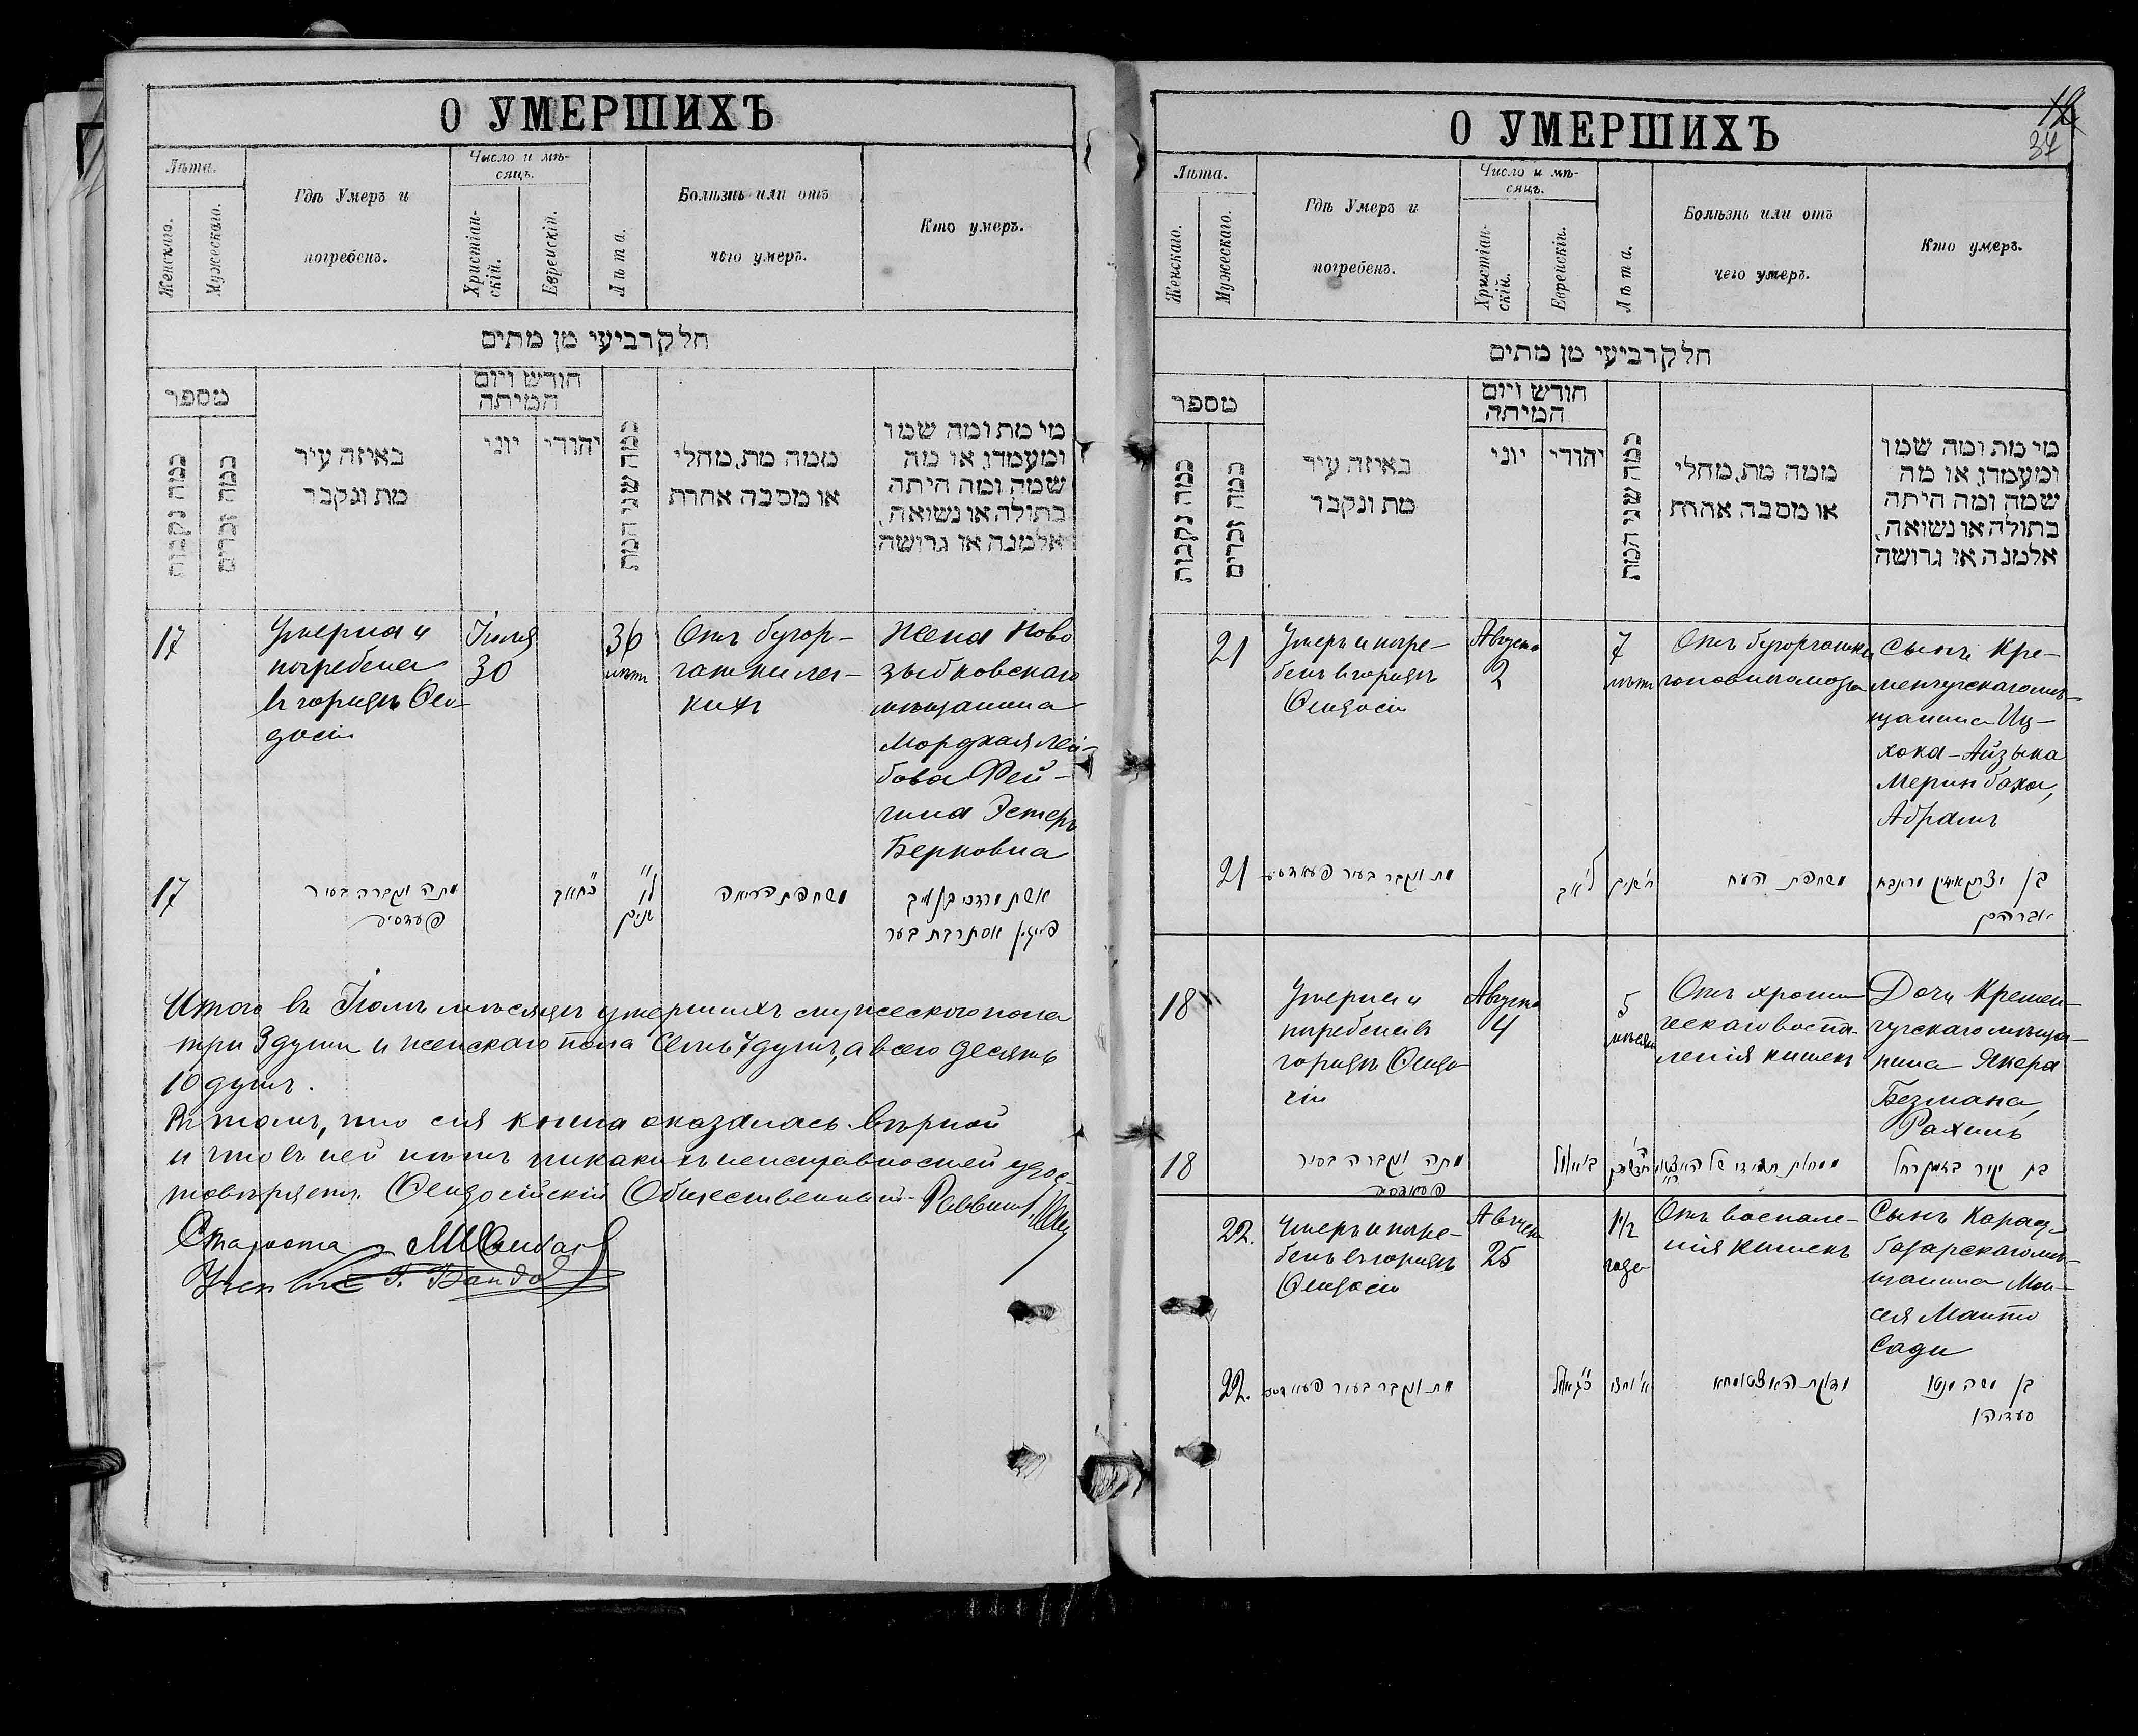 О УМЕРШИХЪ
Лѣта.
Женскаго.
Мужескаго.
Гдѣ Умеръ и
погребенъ.
Число и мѣ-
сяцъ.
Христіан-
скій.
Еврейскій.
Лѣта.
Болѣзнь или отъ
чего умеръ.
Кто умеръ.
חלק רביעי מן מתים
מספר
כמה נקבות
כמה זכרים
באיזה עיר
מת ונקבר
חודש ויום
המיתה
יוני
יהודי
כמה שני המת
ממה מת, מחלי
או מסבה אחרת
מי מת ומה שמו
ומעמדו, או מה
שמה ומה היתה
בתולה או נשואה,
אלמנה או גרושה
17
Умерла и
погребена
въ городѣ Ѳео-
досіи
Іюля
30
36
лѣтъ
Отъ бугор-
чатки лег-
кихъ
Жена Ново
зыбковскаго
мѣщанина
Мордхая Лей-
бова Фей-
гина Эстеръ
Берковна
17
מתה ונקברה בעיר
שנים
משחפת הריאה
אשת מרדכי בן לייב
פייגין אסתר בת בער
Итого въ Іюлѣ мѣсяцѣ умершихъ мужескаго пола
три 3 души и женскаго пола семь 7 душъ, а всего десять
10 душъ.
Въ томъ, что сія книга оказалась вѣрной
и что въ ней нѣтъ никакихъ неисправностей удос-
товѣряетъ Ѳеодосійскій Общественный Раввинъ
Староста
О УМЕРШИХЪ
12
34
Лѣта.
Женскаго.
Мужескаго.
Гдѣ Умеръ и
погребенъ.
Число и мѣ-
сяцъ.
Христіан-
скій.
Еврейскій.
Лѣта.
Болѣзнь или отъ
чего умеръ.
Кто умеръ.
חלק רביעי מן מתים
מספר
כמה נקבות
כמה זכרים
באיזה עיר
מת ונקבר
חודש ויום
המיתה
יוני
יהודי
כמה שני המת
ממה מת, מחלי
או מסבה אחרת
מי מת ומה שמו
ומעמדו, או מה
שמה ומה היתה
בתולה או נשואה,
אלמנה או גרושה
21
Умеръ и погре-
бенъ въ городѣ
Ѳеодосіи
Августа
2
7
лѣтъ
Отъ бугорчатки
головнаго мозга
Сынъ Кре-
менчугскаго мѣ-
щанина Иц-
хока-Айзыка
Меринбаха,
Абрамъ
21
מת ונקבר בעיר
משחפת המח
אברהם
18
Умерла и
погребена въ
городѣ Ѳеодо-
сіи
Августа
4
5
мѣсяц
Отъ хрони
ческаго воспа-
ленія кишекъ
Дочь Кремен-
чугскаго мѣща-
нина Янкера
Безмана,
Рахиль
18
מתה ונקברה בעיר
22.
Умеръ и погре-
бенъ въ городѣ
Ѳеодосіи
Августа
25
1½
года
Отъ воспале-
нія кишекъ
Сынъ Карасу-
базарскаго мѣ-
щанина Мои-
сея Манто
Сади
22.
מת ונקבר בעיר
בן משה מנטו
סעדיה